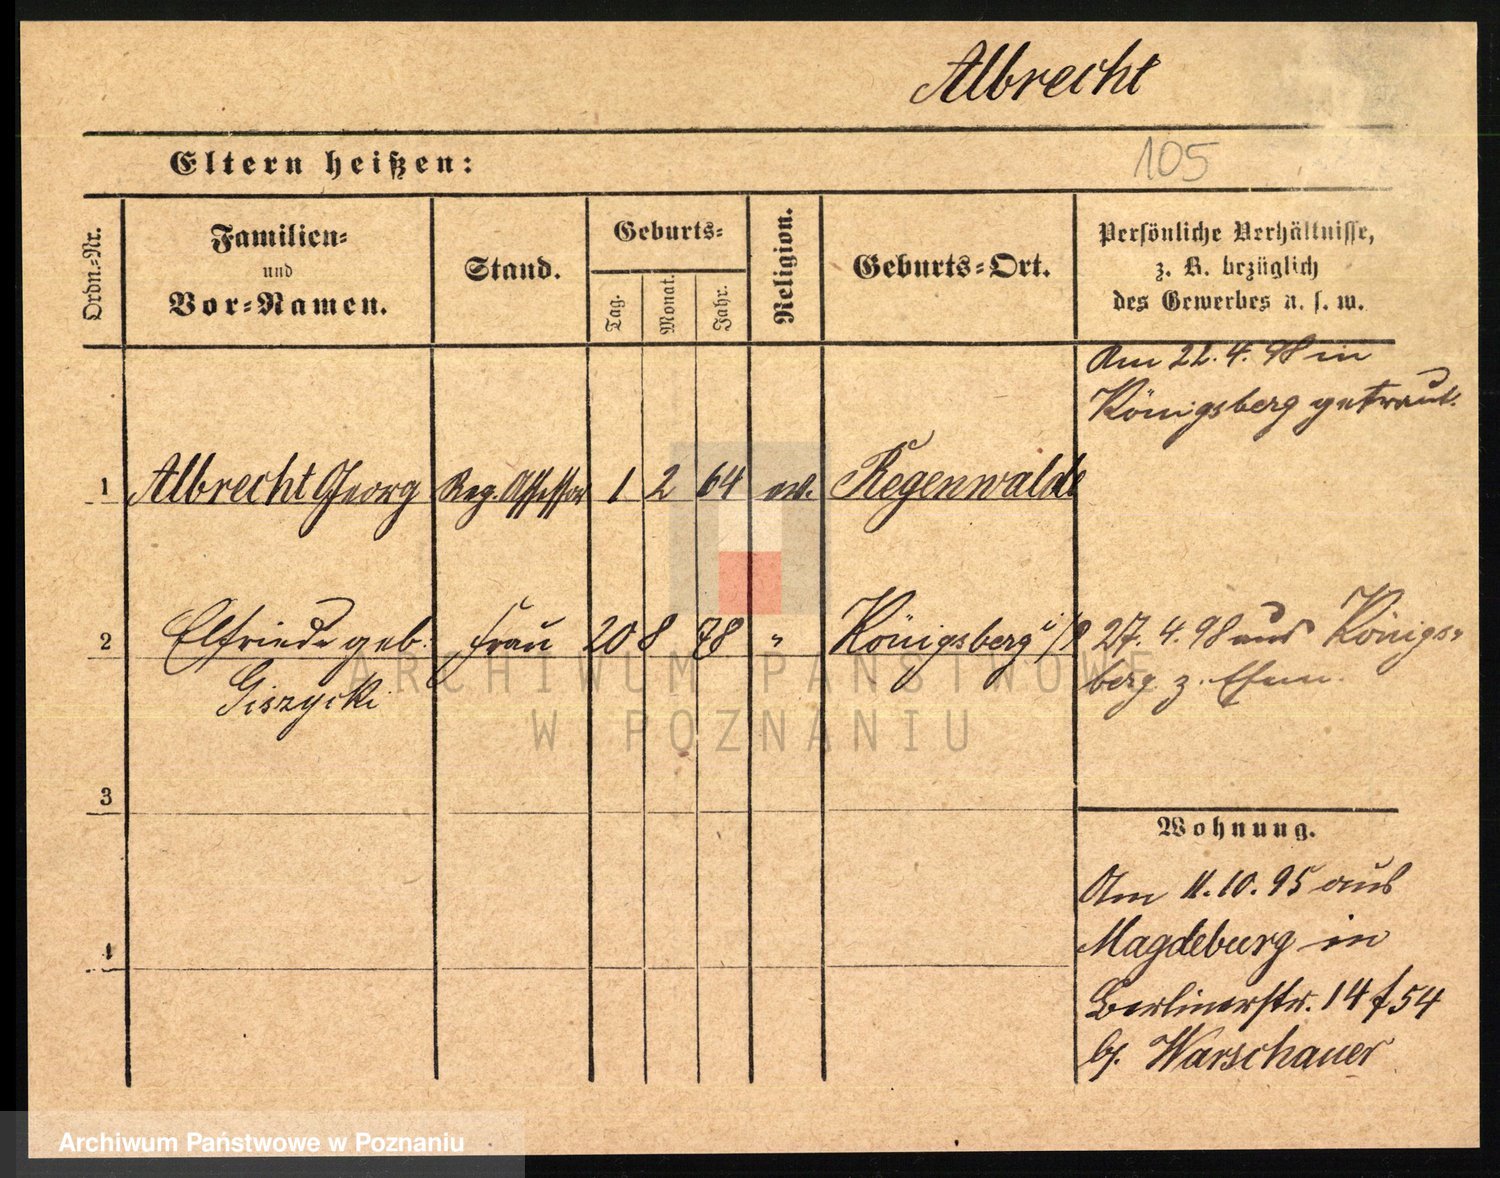 Albrecht
Eltern heißen:
105
Ordn.-Nr.
Familien-
und
Vor-Namen.
Stand.
Geburts-
Tag.
Monat.
Jahr.
Religion.
Geburts-Ort.
Persönliche Verhältnisse,
z. B. bezüglich
des Gewerbes u. s. w.
Am 22. 4. 98 in
Königsberg getraut.
1 Albrecht Georg Reg. Assessor 1 2 64 ev. Regenwalde
2 Elfriede geb. Frau 20 8 78 " Königsberg i/P 27. 4. 98 aus Königs-
Giszycki
berg z. Ehem.
3
4
Wohnung.
Am 11. 10. 95 aus
Magdeburg in
Berlinerstr. 14 f 54
bei Warschauer
ARCHIWUM PAŃSTWOWE
W POZNANIU
Archiwum Państwowe w Poznaniu